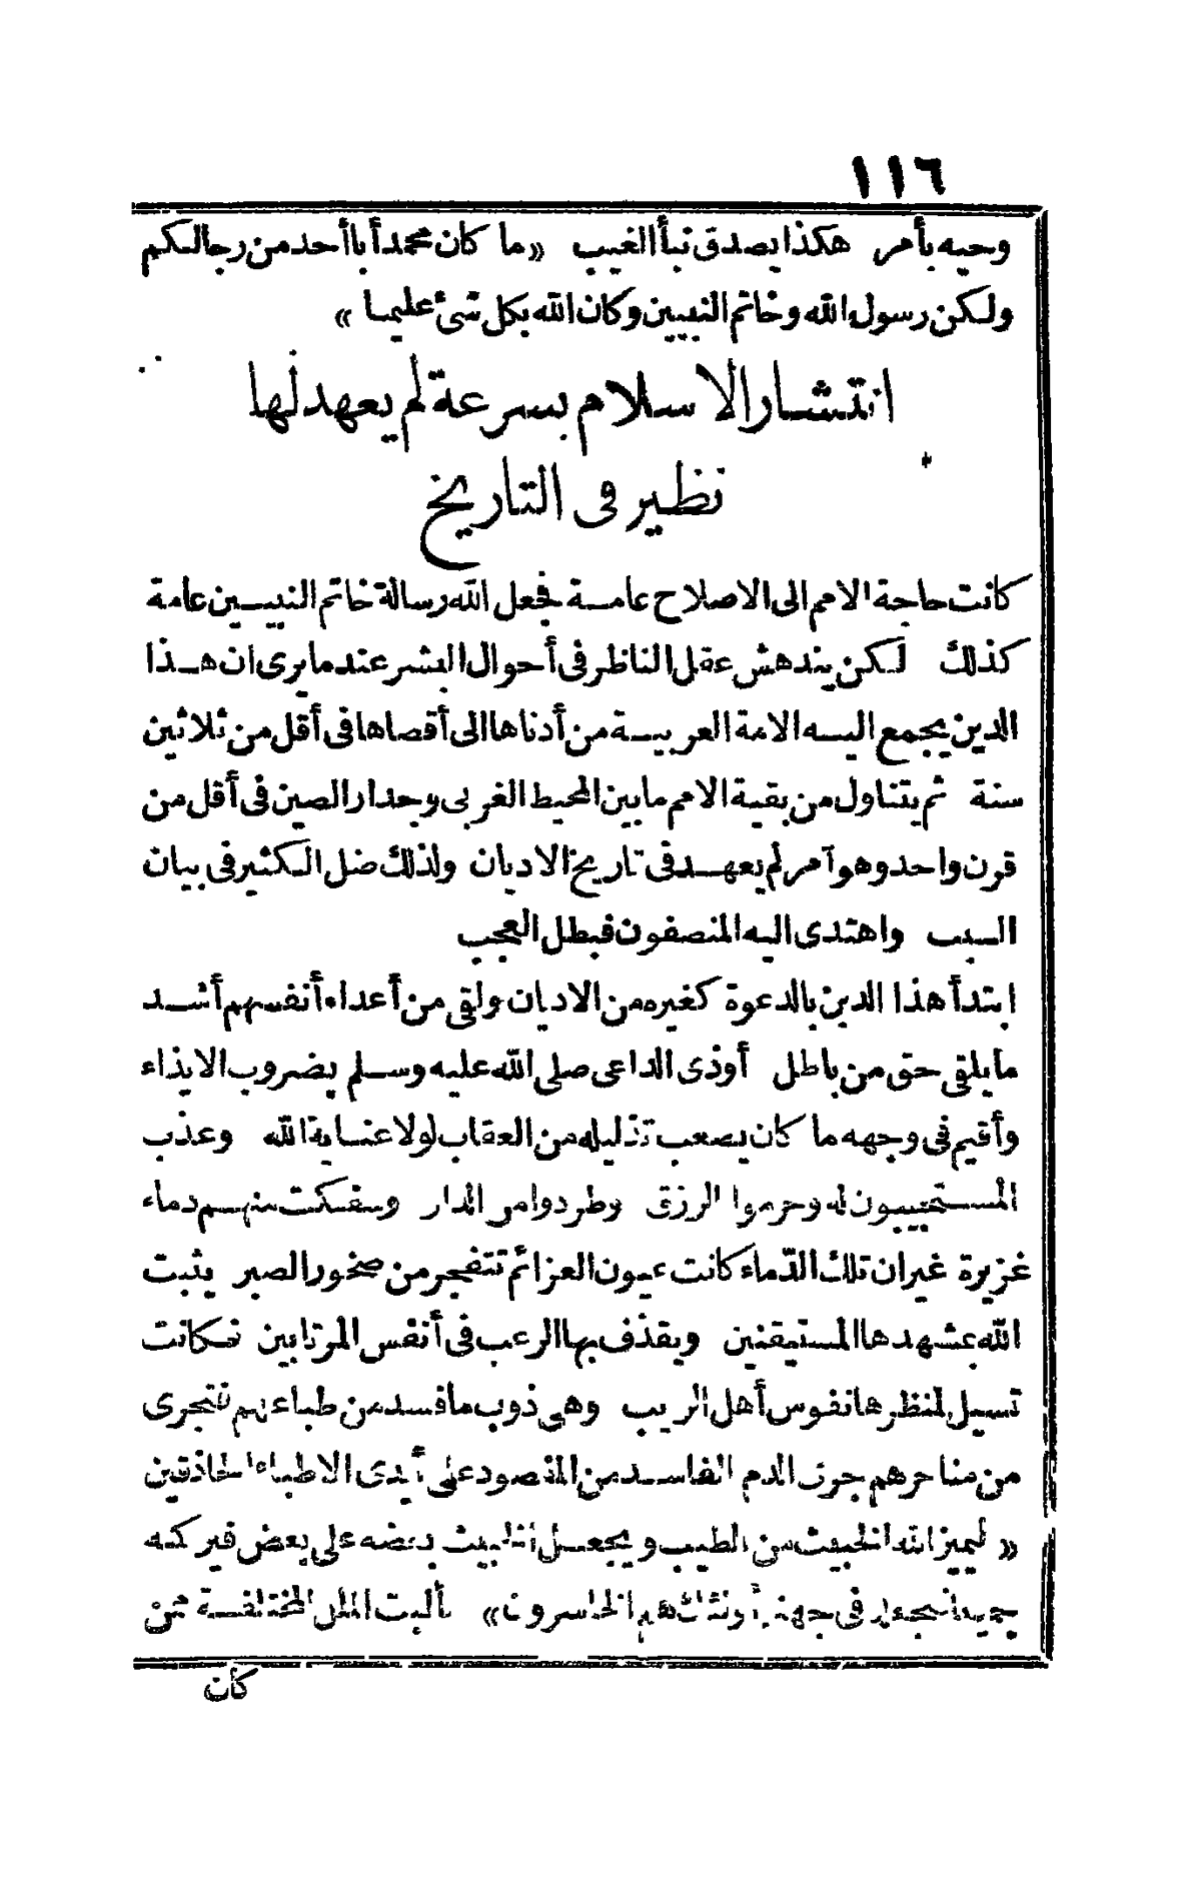 ١١٦
وحيه بأمر هكذا يصدق نبأ الغيب «ما كان محمد أبا أحد من رجالكم
ولكن رسول الله وخاتم النبيين وكان الله بكل شئ عليما»
انتشار الاسلام بسرعة لم يعهد لها
نظير فى التاريخ
كانت حاجة الامم الى الاصلاح عامة فجعل الله رسالة خاتم النبيين عامة
كذلك لكن يندهش عقل الناظر فى أحوال البشر عند ما يرى ان هذا
الدين يجمع اليه الامة العربية من أدناها الى أقصاها فى أقل من ثلاثين
سنة ثم يتناول من بقية الامم ما بين المحيط الغربى وجدار الصين فى أقل من
قرن واحد وهو أمر لم يعهد فى تاريخ الاديان ولذلك ضل الكثير فى بيان
السبب واهتدى اليه المنصفون فبطل العجب
ابتدأ هذا الدين بالدعوة كغيره من الاديان ولقى من أعداء أنفسهم أشد
ما يلقى حق من باطل أوذى الداعى صلى الله عليه وسلم بضروب الايذاء
وأقيم فى وجهه ما كان يصعب تذليله من العقاب لولا عناية الله وعذب
المستجيبون له وحرموا الرزق وطردوا من الدار وسفكت منهم دماء
غزيرة غير ان تلك الدّماء كانت عيون العزائم تتفجر من صخور الصبر يثبت
الله بمشهدها المستيقنين ويقذف بها الرعب فى أنفس المرتابين فكانت
تسيل لمنظرها نفوس أهل الريب وهى ذوب ما فسد من طباعهم فتجرى
من مناحرهم جرى الدم الفاسد من المفصود على أيدى الاطباء الحاذقين
«ليميز الله الخبيث من الطيب ويجعل الخبيث بعضه على بعض فيركمه
جميعا فيجعله فى جهنم أولئك هم الخاسرون» تألبت الملل المختلفة ممن
كان